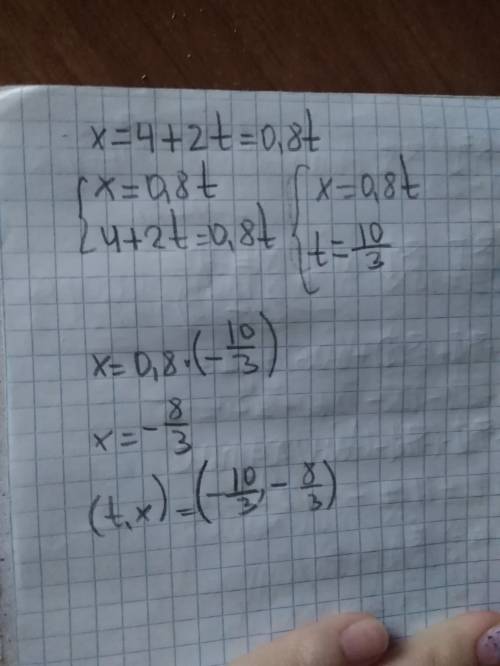 x=4+2t=0,8t
{x=0,8t {x=0,8t
{4+2t=0,8t {t=10/3
x=0,8·(-10/3)
x=-8/3
(t,x)=(-10/3,-8/3)